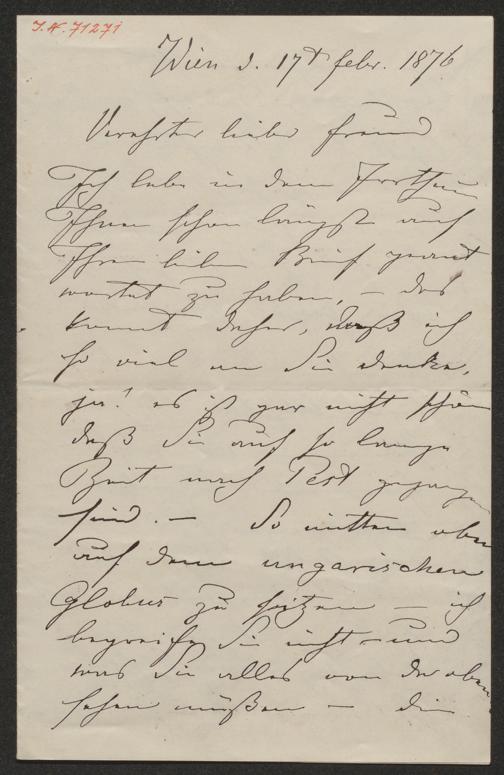 I.N. 71271
Wien d. 17t febr. 1876
Verehrter lieber Freund
Ich lebe in dem Irrthum
Ihnen schon längst auf
Ihren lieben Brief geant
wortet zu haben, – das
kommt daher, daß ich
so viel an Sie denke,
ja! es ist gar nicht schön
daß Sie auf so lange
Zeit nach Pest gegangen
sind. – So mitten oben
auf dem ungarischen
Globus zu sitzen – ich
begreife Sie nicht – und
was Sie alles von da oben
sehen müßen – die